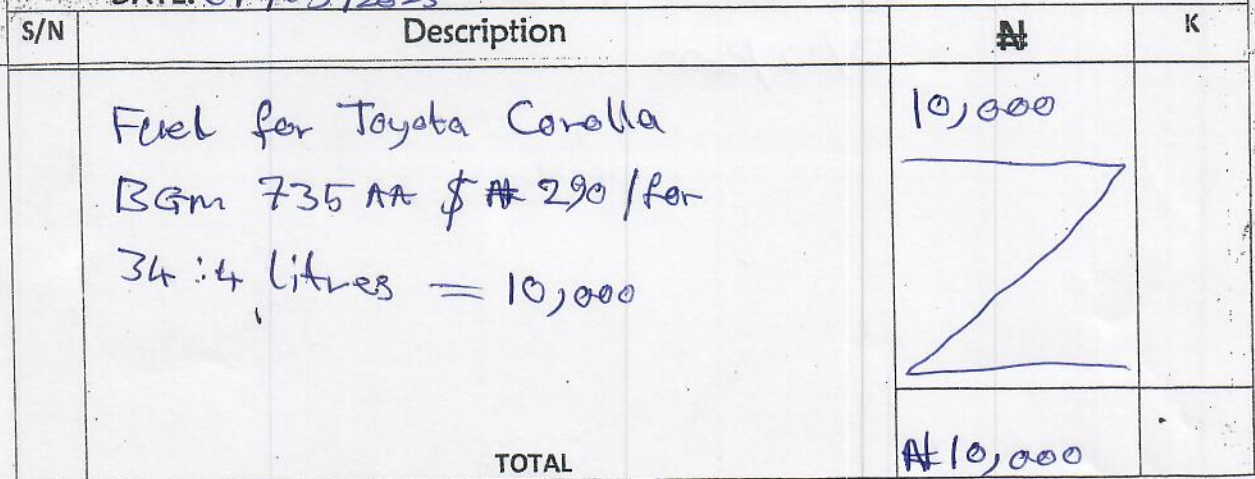 S/N Description ₦ K
Fuel for Toyota Corolla 10,000
BGM 735 AA $ ₦ 290 / for
34:4 litres = 10,000
TOTAL ₦10,000